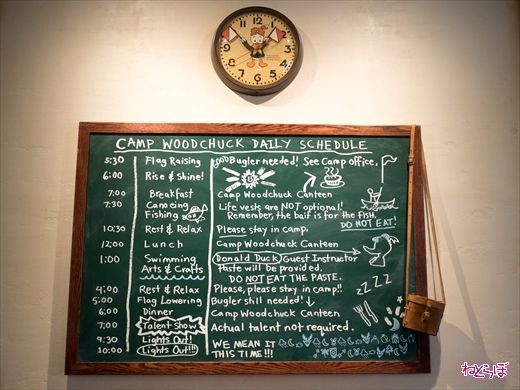 CAMP WOODCHUCK DAILY SCHEDULE
5:30 Flag Raising Bugler needed! See Camp office.
6:00 Rise & Shine!
7:00 Breakfast Camp Woodchuck Canteen
7:30 Canoeing Life vests are NOT optional!
Fishing Remember, the bait is for the FISH.
DO NOT EAT!
10:30 Rest & Relax Please stay in camp.
12:00 Lunch Camp Woodchuck Canteen
1:00 Swimming Donald Duck Guest Instructor
Arts & Crafts Paste will be provided.
DO NOT EAT THE PASTE.
4:00 Rest & Relax Please, please stay in camp!!
5:00 Flag Lowering Bugler still needed!
6:00 Dinner Camp Woodchuck Canteen
zZZZ
7:00 Talent Show Actual talent not required.
9:30 Lights Out!
10:00 Lights Out!!! WE MEAN IT
THIS TIME!!!
ねくらぽ